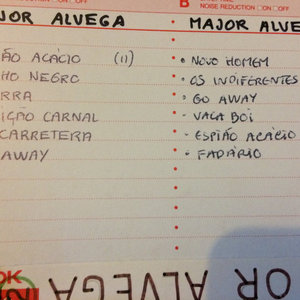 ON OFF
B
NOISE REDUCTION ON OFF
JOR ALVEGA
ÃO ACÁCIO (II)
HO NEGRO
RRA
IÇÃO CARNAL
CARRETERA
AWAY
MAJOR ALVE
• NOVO HOMEM
• OS INDIFERENTES
• GO AWAY
• VACA BOI
• ESPIÃO ACÁCIO
• FADÁRIO
OR ALVEGA